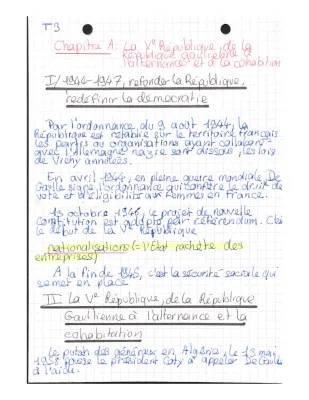 T3
Chapitre A: La Vᵉ République, de la
République gaullienne à
l'alternance et à la cohabition
I/ 1944-1947, refonder la République,
redéfinir la démocratie
Par l'ordonnance du 9 août 1944, la
République est rétablie sur le territoire français
les partis ou organisations ayant collaborer
avec l'Allemagne nazie sont dissous, les lois
de Vichy annulées.
En avril 1944, en pleine guerre mondiale, De
Gaulle signe l'ordonnance qui confère le droit de
vote et d'éligibilité aux femmes en France.
13 octobre 1946, le projet de nouvelle
Constitution est adopté par référendum. C'est
le début de la République
nationalisations (= l'État rachète des
entreprises)
A la fin de 1945, c'est la sécurité sociale qui
se met en place
II La Vᵉ République, de la République
Gaullienne à l'alternance et la
cohabitation
Le putsh des généraux en Algérie, le 13 mai
1958 pousse le président Coty à appeler De Gaulle
à l'aide.